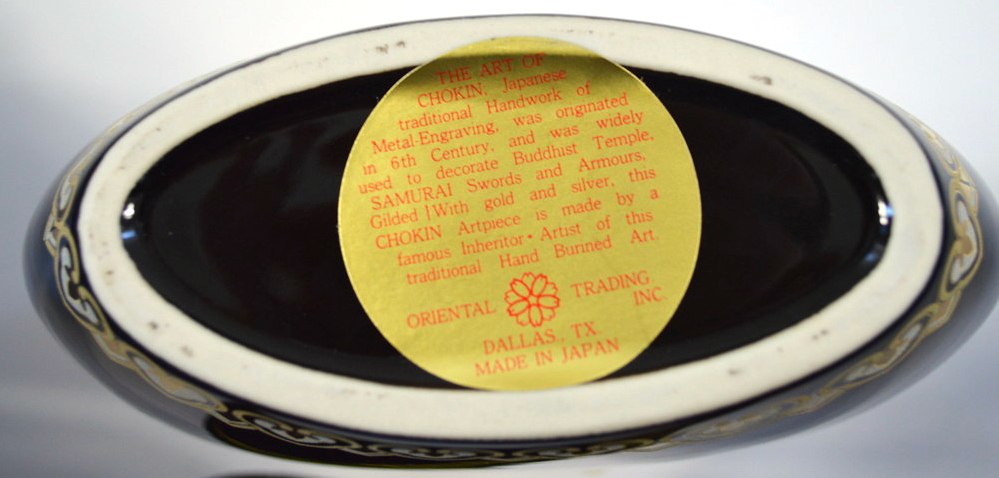 THE ART OF
CHOKIN; Japanese
traditional Handwork of
Metal-Engraving, was originated
in 6th Century, and was widely
used to decorate Buddhist Temple,
SAMURAI Swords and Armours.
Gilded With gold and silver, this
CHOKIN Artpiece is made by a
famous Inheritor・Artist of this
traditional Hand Burined Art.
ORIENTAL TRADING INC.
DALLAS, TX.
MADE IN JAPAN